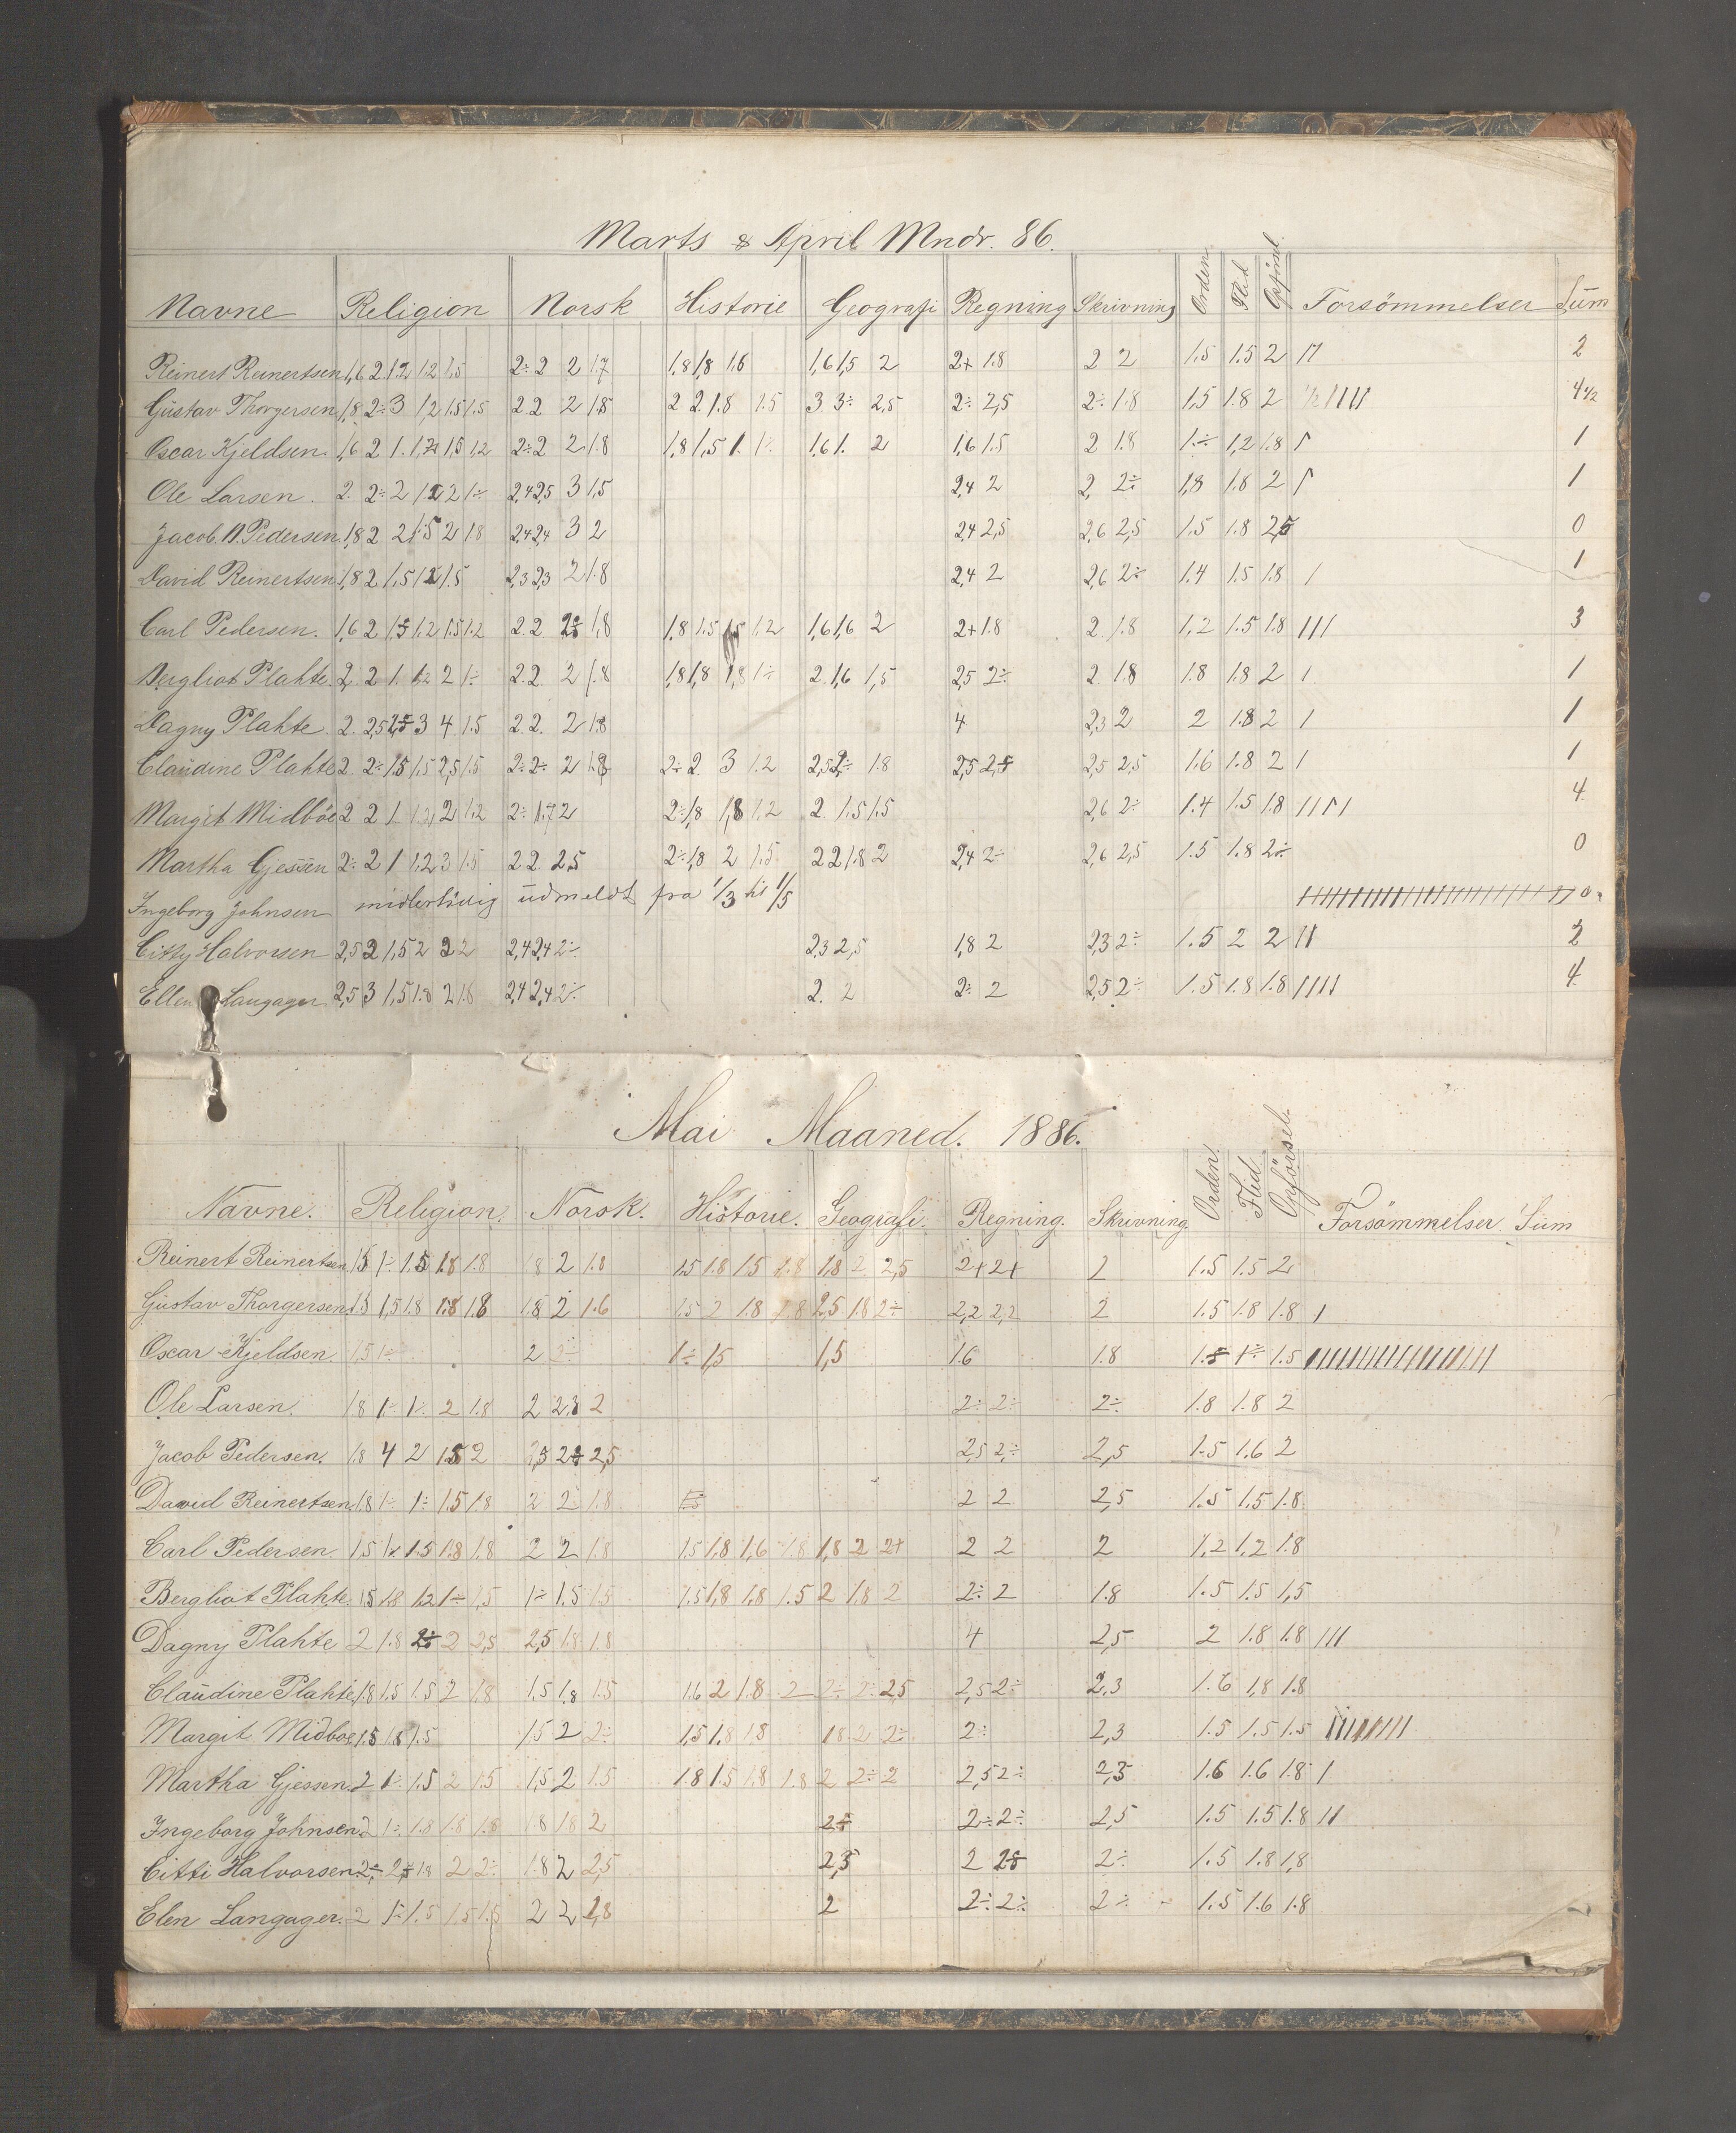 Marts & April Mndr. 86.
Navne Religion Norsk Historie Geografi Regning Skrivning Orden Flid Opförsel Forsömmelser Sum
Reinert Reinertsen 1,6 2 1.2 1.2 1.5 2÷ 2 2 1.7 1,8 1,8 1.6 1,6 1,5 2 2+ 1.8 2 2 1.5 1.5 2 11 2
Gustav Thorgersen 1,8 2÷ 3 1,2 1.5 1.5 2 2 2 1.8 2 2 1.8 1.5 3 3÷ 2,5 2÷ 2,5 2÷ 1.8 1,5 1.8 2 ½ 1111 4 1/2
Oscar Kjeldsen 1,6 2 1. 1.2 1,5 1,2 2÷ 2 2 1.8 1,8 1,5 1. 1÷ 1,6 1. 2 1,6 1.5 2 1.8 1÷ 1,2 1.8 1 1
Ole Larsen. 2. 2÷ 2 1.2 2 1÷ 2,4 2,5 3 1,5 2,4 2 2, 2÷ 1,8 1.8 2 1 1
Jacob N. Pedersen 1,8 2 2 1.5 2 1.8 2,4 2,4 3 2 2,4 2,5 2,6 2,5 1.5 1.8 2,5 0
David Reinertsen 1,8 2 1,5 1.2 1.5 2,3 2,3 2 1.8 2,4 2 2,6 2÷ 1.4 1.5 1.8 1 1
Carl Pedersen. 1,6 2 1.5 1.2 1.5 1.2 2. 2 2÷ 1,8 1,8 1.5 1.5 1.2 1,6 1,6 2 2+ 1.8 2. 1.8 1,2 1.5 1.8 111 3
Bergliot Plahte. 2, 2 1. 1.2 2 1÷ 2. 2. 2 1.8 1,8 1,8 1,8 1÷ 2. 1,6 1,5 2,5 2÷ 2 1.8 1.8 1.8 2 1 1
Dagny Plahte. 2. 2,5 2÷ 3 4 1.5 2. 2. 2 1.8 4 2,3 2 2 1.8 2 1 1
Claudine Plahte 2. 2÷ 1.5 1.5 2,5 1.5 2÷ 2÷ 2 1.8 2÷ 2. 3 1.2 2,5 2÷ 1.8 2,5 2,5 2,5 2,5 1.6 1.8 2 1 1
Margit Midböe 2 2 1 1.2 2 1.2 2÷ 1.7 2 2÷ 1,8 1,8 1.2 2. 1.5 1.5 2,6 2÷ 1.4 1.5 1.8 1111 4
Martha Gjessen 2÷ 2 1 1.2 3 1.5 2 2. 2,5 2÷ 1,8 2 1.5 2 2 1.8 2 2,4 2÷ 2,6 2,5 1.5 1.8 2÷ 0
Ingeborg Johnsen midlertidig udmeldt fra 1/3 til 1/5 0
Citty Halvorsen 2,5 2 1,5 2 2 2 2,4 2,4 2÷ 2,3 2,5 1,8 2 2,3 2÷ 1.5 2 2 11 2
Ellen Langager 2,5 3 1,5 1.8 2 1.8 2,4 2,4 2÷ 2. 2 2÷ 2 2,5 2÷ 1.5 1.8 1.8 1111 4
Mai Maaned. 1886.
Navne. Religion. Norsk. Historie. Geografi. Regning. Skrivning Orden. Flid. Opförsel. Forsömmelser. Sum
Reinert Reinertsen. 1.5 1÷ 1.5 1.8 1.8 1.8 2 1.8 1.5 1.8 1.5 1.8 1.8 2 2,5 2+ 2+ 2 1.5 1.5 2
Gustav Thorgersen 1.5 1,5 1.8 1.8 1.8 1.8 2 1.6 1.5 2 1.8 1.8 2,5 1.8 2÷ 2,2 2,2 2 1.5 1.8 1.8 1
Oscar Kjeldsen 1.5 1÷ 2 2÷ 1÷ 1,5 1,5 1.6 1.8 1.5 1÷ 1.5
Ole Larsen. 1.8 1÷ 1÷ 2 1.8 2 2,3 2 2÷ 2÷ 2÷ 1.8 1.8 2
Jacob Pedersen. 1.8 4 2 1.5 2 2,5 2÷ 2,5 2,5 2÷ 2,5 1.5 1.6 2
David Reinertsen 1.8 1÷ 1÷ 1.5 1.8 2 2 1.8 2 2 2,5 1.5 1.5 1.8
Carl Pedersen. 1,5 1.2 1.5 1.8 1.8 2 2 1.8 1.5 1.8 1,6 1.8 1,8 2 2+ 2 2 2 1,2 1.2 1.8
Bergliot Plahte. 1.5 1.8 1.2 1÷ 1,5 1÷ 1.5 1.5 1.5 1,8 1.8 1.5 2 1.8 2 2÷ 2 1.8 1.5 1.5 1,5
Dagny Plahte 2 1.8 2÷ 2 2,5 2,5 1.8 1.8 4 2,5 2 1.8 1.8 111
Claudine Plahte 1.8 1.5 1.5 2 1.8 1.5 1,8 1.5 1.6 2 1.8 2 2÷ 2÷ 2,5 2,5 2÷ 2,3 1.6 1,8 1.8
Margit Midboe 1.5 1.8 1.5 1.5 2 2÷ 1,5 1.8 1.8 1.8 2 2÷ 2÷ 2,3 1.5 1.5 1.5
Martha Gjessen. 2 1÷ 1.5 2 1.5 1,5 2 1.5 1.8 1.5 1.8 1.8 2 2÷ 2 2,5 2÷ 2,3 1.6 1.6 1.8 1
Ingeborg Johnsen. 2 1÷ 1.8 1.8 1.8 1.8 1.8 2 2÷ 2÷ 2÷ 2,5 1.5 1.5 1.8 11
Citti Halvorsen. 2÷ 2÷ 1.8 2 2÷ 1.8 2 2,5 2,5 2 2÷ 1.5 1.8 1,8
Elen Langager. 2 1÷ 1.5 1.5 1.5 2 2 1,8 2 2÷ 2÷ 2÷ 1.5 1.6 1.8